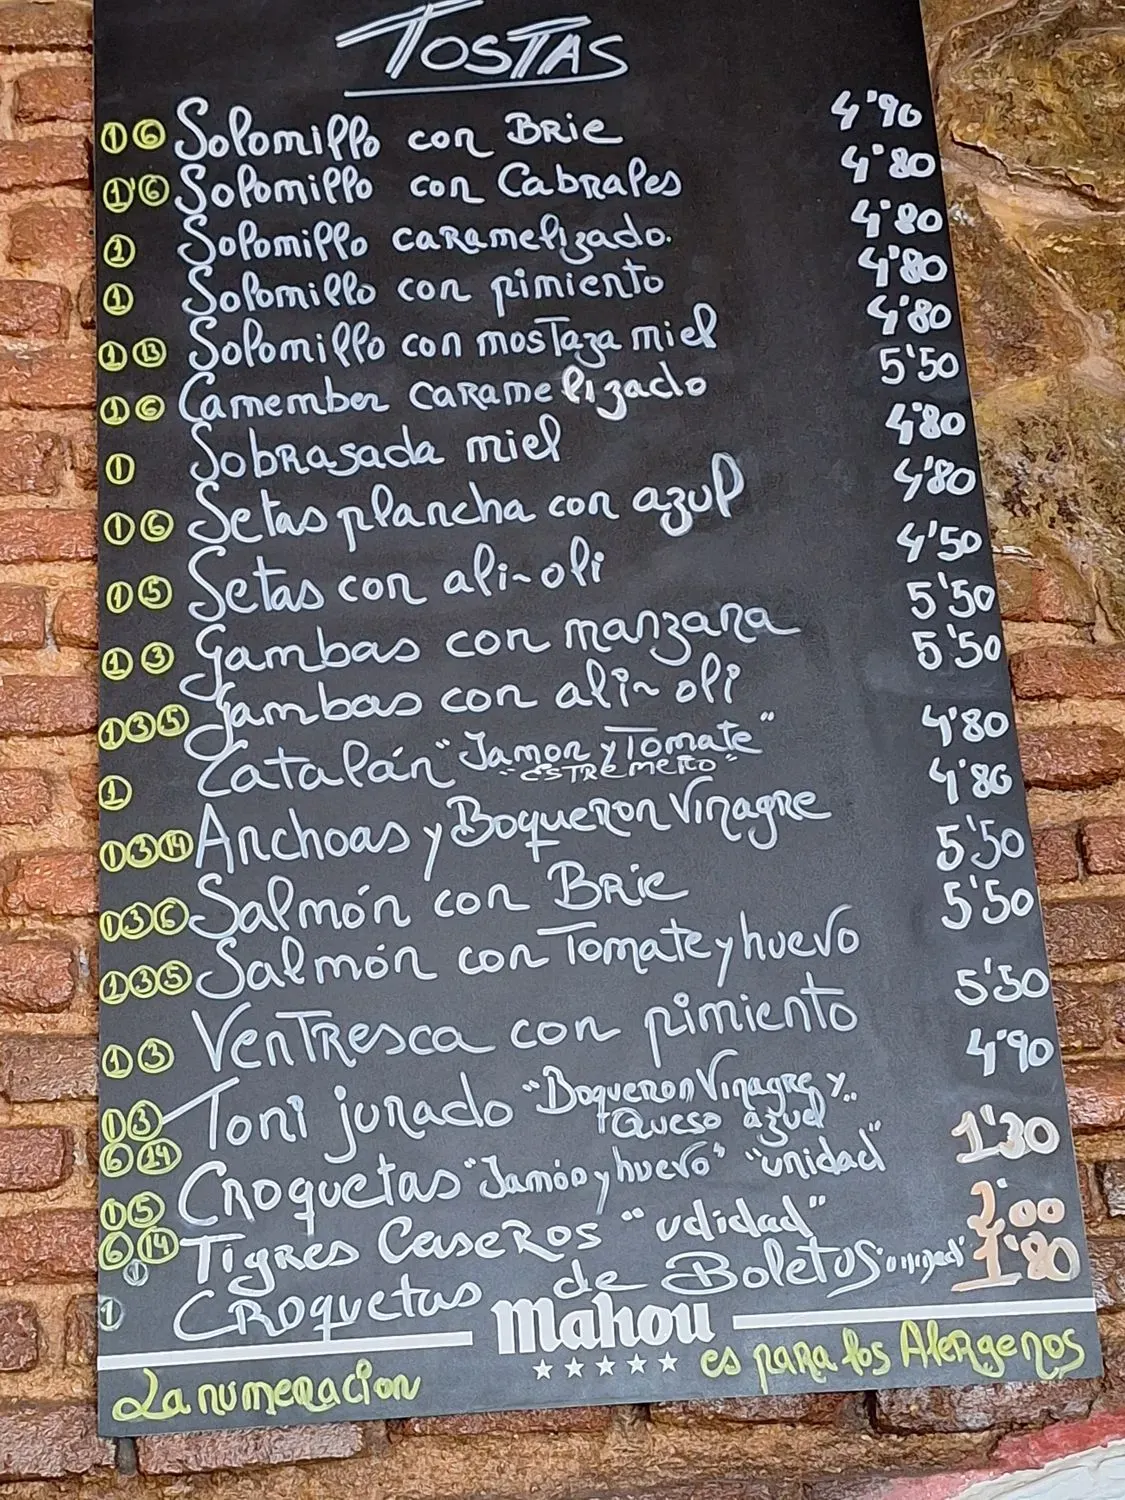 TOSTAS
1 6 Solomillo con BRie 4'90
1'6 Solomillo con Cabrales 4'80
1 Solomillo caramelizado. 4'80
1 Solomillo con pimiento 4'80
1 13 Solomillo con mostaza miel 4'80
1 6 Camember caramelizado 5'50
1 Sobrasada miel 4'80
1 6 Setas plancha con azul 4'80
1 5 Setas con ali-oli 4'50
1 3 Gambas con manzana 5'50
1 3 5 Gambas con ali-oli 5'50
1 Catalán "Jamon y Tomate" 4'80
"ESTREMEÑO"
1 3 14 Anchoas y Boqueron Vinagre 4'80
1 3 6 Salmón con BRie 5'50
1 3 5 Salmón con Tomate y huevo 5'50
1 3 Ventresca con pimiento 5'50
1 3 Toni jurado "Boqueron Vinagre y 4'90
6 14 Queso azul
1 5 Croquetas "Jamón y huevo" "unidad" 1'30
6 14 Tigres Caseros "udidad" 2'00
1 1 Croquetas de Boletus 1'80
Mahou
La numeracion es para los Alergenos